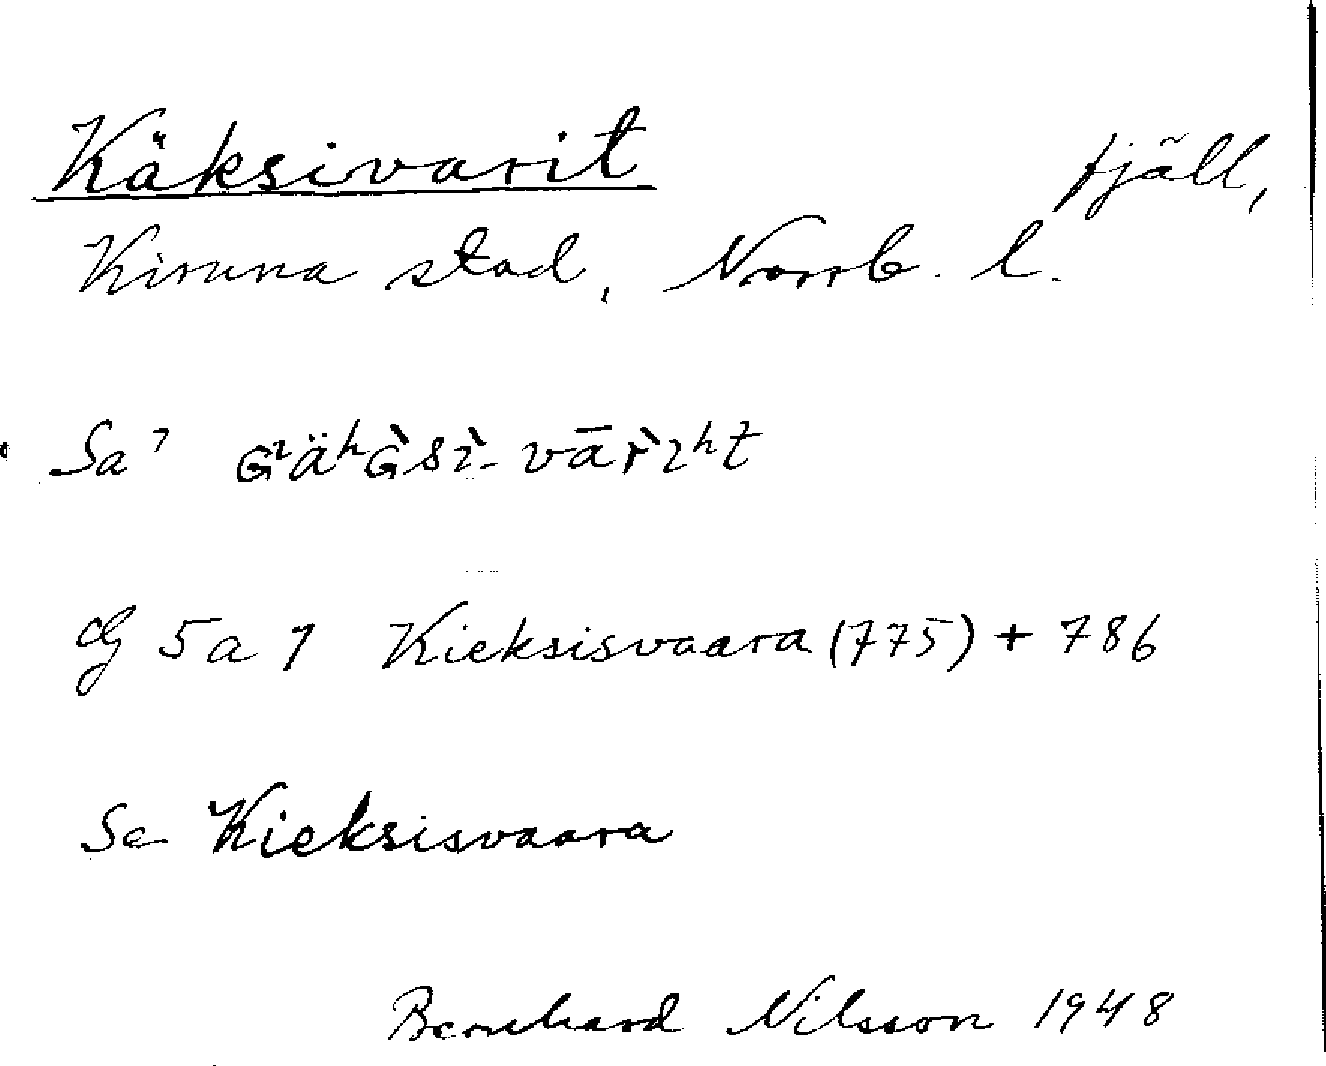 Käksivarit fjäll,
Kiruna stad, Norrb. l.
Sa⁷ ɢᶦäʰɢ̀sì-vār̀ıʰt
dG 5a 1 Kieksisvaara (775) + 786
Se Kieksisvaara
Bernhard Nilsson 1948